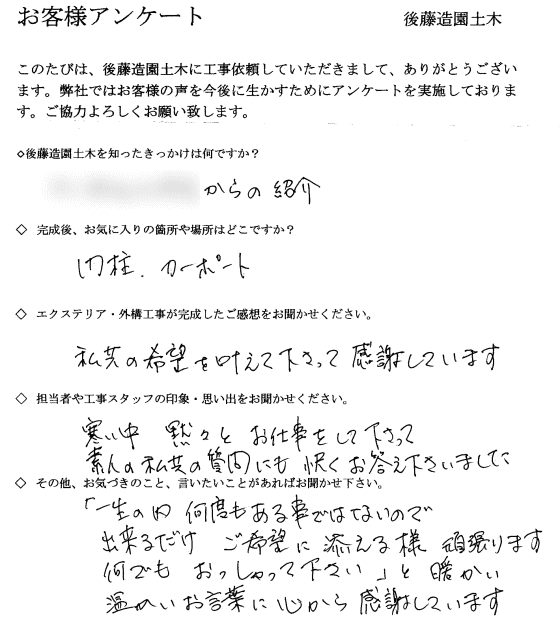 お客様アンケート 後藤造園土木
このたびは、後藤造園土木に工事依頼していただきまして、ありがとうござい
ます。弊社ではお客様の声を今後に生かすためにアンケートを実施しておりま
す。ご協力よろしくお願い致します。
◇後藤造園土木を知ったきっかけは何ですか?
からの紹介
◇ 完成後、お気に入りの箇所や場所はどこですか?
門柱、カーポート
◇ エクステリア・外構工事が完成したご感想をお聞かせください。
私共の希望を叶えて下さって感謝しています
◇ 担当者や工事スタッフの印象・思い出をお聞かせください。
寒い中 黙々とお仕事をして下さって
素人の私共の質問にも快くお答え下さいました
◇ その他、お気づきのこと、言いたいことがあればお聞かせ下さい。
「一生の内 何度もある事ではないので
出来るだけ ご希望に添える様 頑張ります
何でも おっしゃって下さい」と 暖かい
温かいお言葉に心から感謝しています